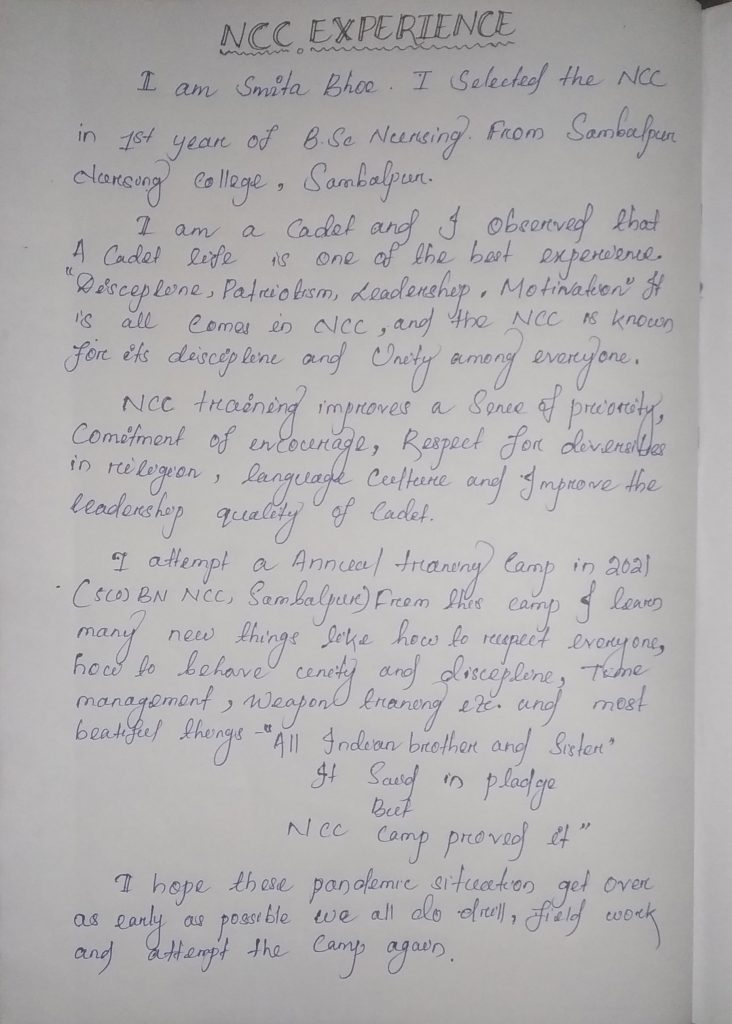 NCC EXPERIENCE
I am Smita Bhoe. I Selected the NCC
in 1st year of B.Sc Nursing. From Sambalpur
Nursong college, Sambalpur.
I am a Cadet and I observed that
A Cadet life is one of the best experience.
"Desceplene, Patriotism, Leadershep, Motivateon" It
is all Comes in NCC, and the NCC is known
for its discepline and Unity among everyone.
NCC training improves a Sence of preority,
Comitment of encourage, Respect for diversities
in religeon, language Culture and Improve the
leadershep quality of Cadet.
I attempt a Annual traneng Camp in 2021
BN NCC, Sambalpur) From thes camp I learn
many new things like how to respect everyone,
how to behave uenity and discepline, Time
management, Weapon traneng etc. and most
beatiful thengs - "All Indean brother and Sister"
It Said in pladge
But
NCC Camp proved it"
I hope these pandemic situateon get over
as early as possible we all do drill, field work
and attempt the Camp again.